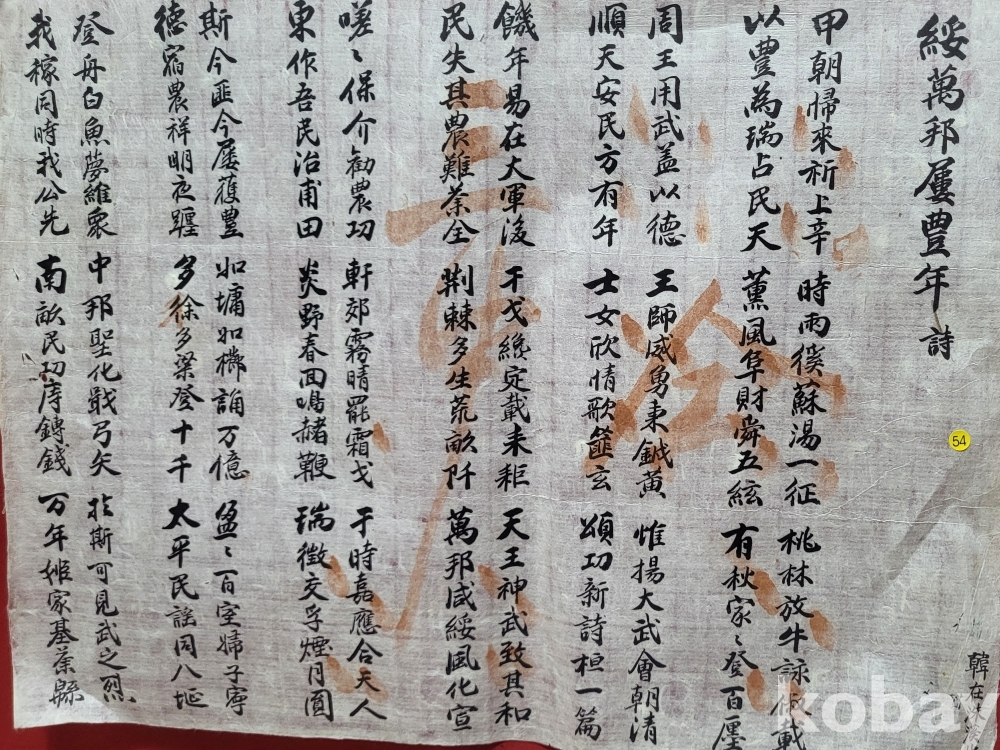 綏萬邦屢豊年 詩
甲朝帰來祈上辛 時雨徯蘇湯一征 桃林放牛詠載
以豊為瑞占民天 薰風阜財舜五絃 有秋家〻登百廛
周王用武盖以德 王師威勇秉鉞黄 惟揚大武會朝清
順天安民方有年 士女欣情歌篚玄 頌功新詩桓一篇
饑年易在大軍後 干戈纔定載耒耜 天王神武致其和
民失其農難業全 荆棘多生荒畝阡 萬邦咸綏風化宣
嗟〻保介勸農功 軒郊霧晴罷霜戈 于時嘉應合天人
東作吾民治甫田 炎野春回鳴赭鞭 瑞徵交孚煙月圓
斯今匪今屢獲豊 如墉如櫛誦万億 盈〻百室婦子寧
德宿農祥明夜躔 多稌多粱登十千 太平民謡同八埏
登舟白魚夢維衆 中邦聖化戢弓矢 於斯可見武之烈
我稼同時我公先 南畝民功庤鎛錢 万年姬家基業緜
54
韓在
kobay